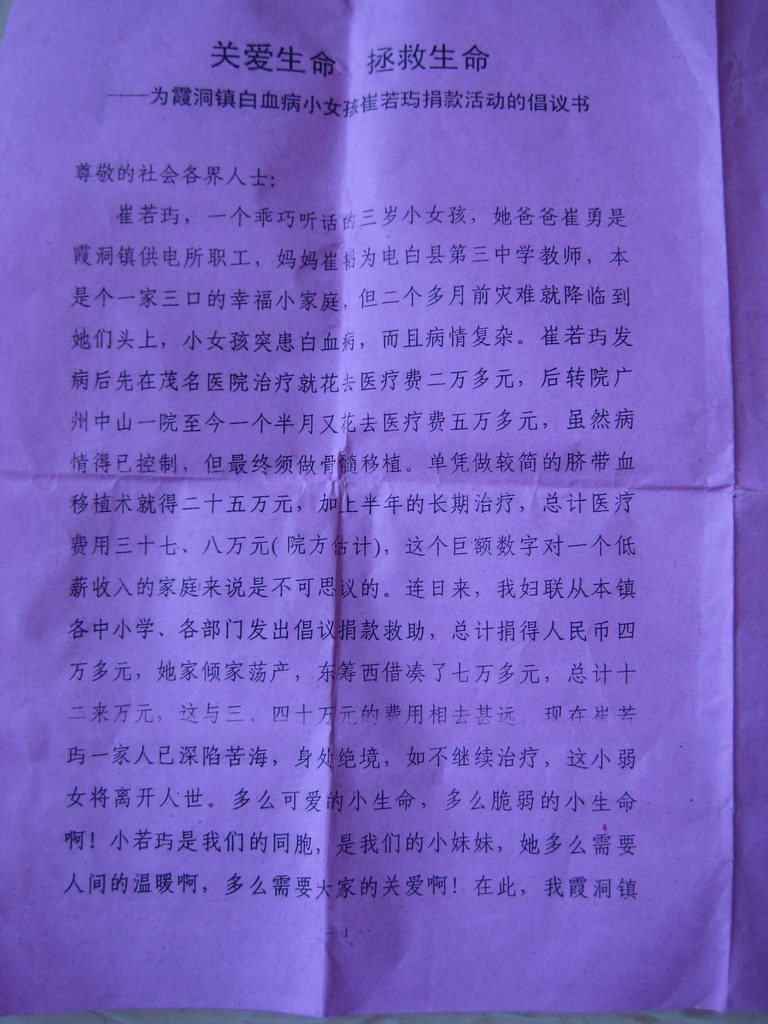 关爱生命 拯救生命
——为霞洞镇白血病小女孩崔若玙捐款活动的倡议书
尊敬的社会各界人士：
崔若玙，一个乖巧听话的三岁小女孩，她爸爸崔勇是
霞洞镇供电所职工，妈妈崔 为电白县第三中学教师，本
是个一家三口的幸福小家庭，但二个多月前灾难就降临到
她们头上，小女孩突患白血病，而且病情复杂。崔若玙发
病后先在茂名医院治疗就花去医疗费二万多元，后转院广
州中山一院至今一个半月又花去医疗费五万多元，虽然病
情得已控制，但最终须做骨髓移植。单凭做较简的脐带血
移植术就得二十五万元，加上半年的长期治疗，总计医疗
费用三十七、八万元(院方估计)，这个巨额数字对一个低
薪收入的家庭来说是不可思议的。连日来，我妇联从本镇
各中小学、各部门发出倡议捐款救助，总计捐得人民币四
万多元，她家倾家荡产，东筹西借凑了七万多元，总计十
二来万元，这与三、四十万元的费用相去甚远。现在崔若
玙一家人已深陷苦海，身处绝境，如不继续治疗，这小弱
女将离开人世。多么可爱的小生命，多么脆弱的小生命
啊！小若玙是我们的同胞，是我们的小妹妹，她多么需要
人间的温暖啊，多么需要大家的关爱啊！在此，我霞洞镇
— 1 —